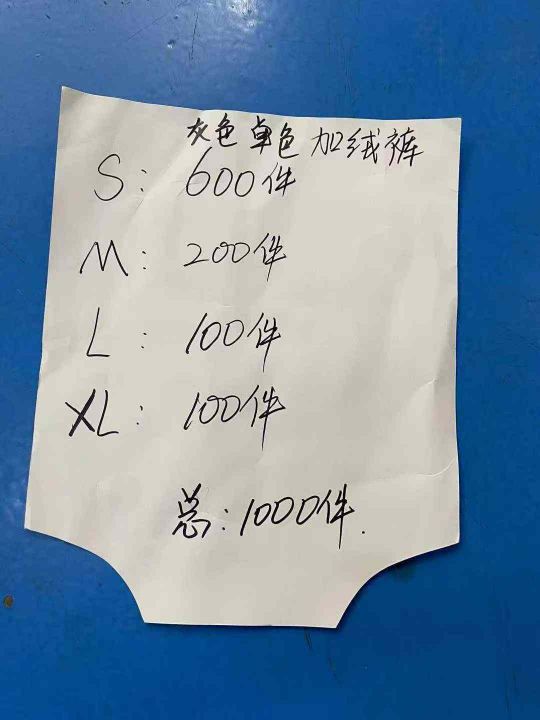 灰色 卓色 加绒裤
S: 600件
M: 200件
L: 100件
XL: 100件
总: 1000件.